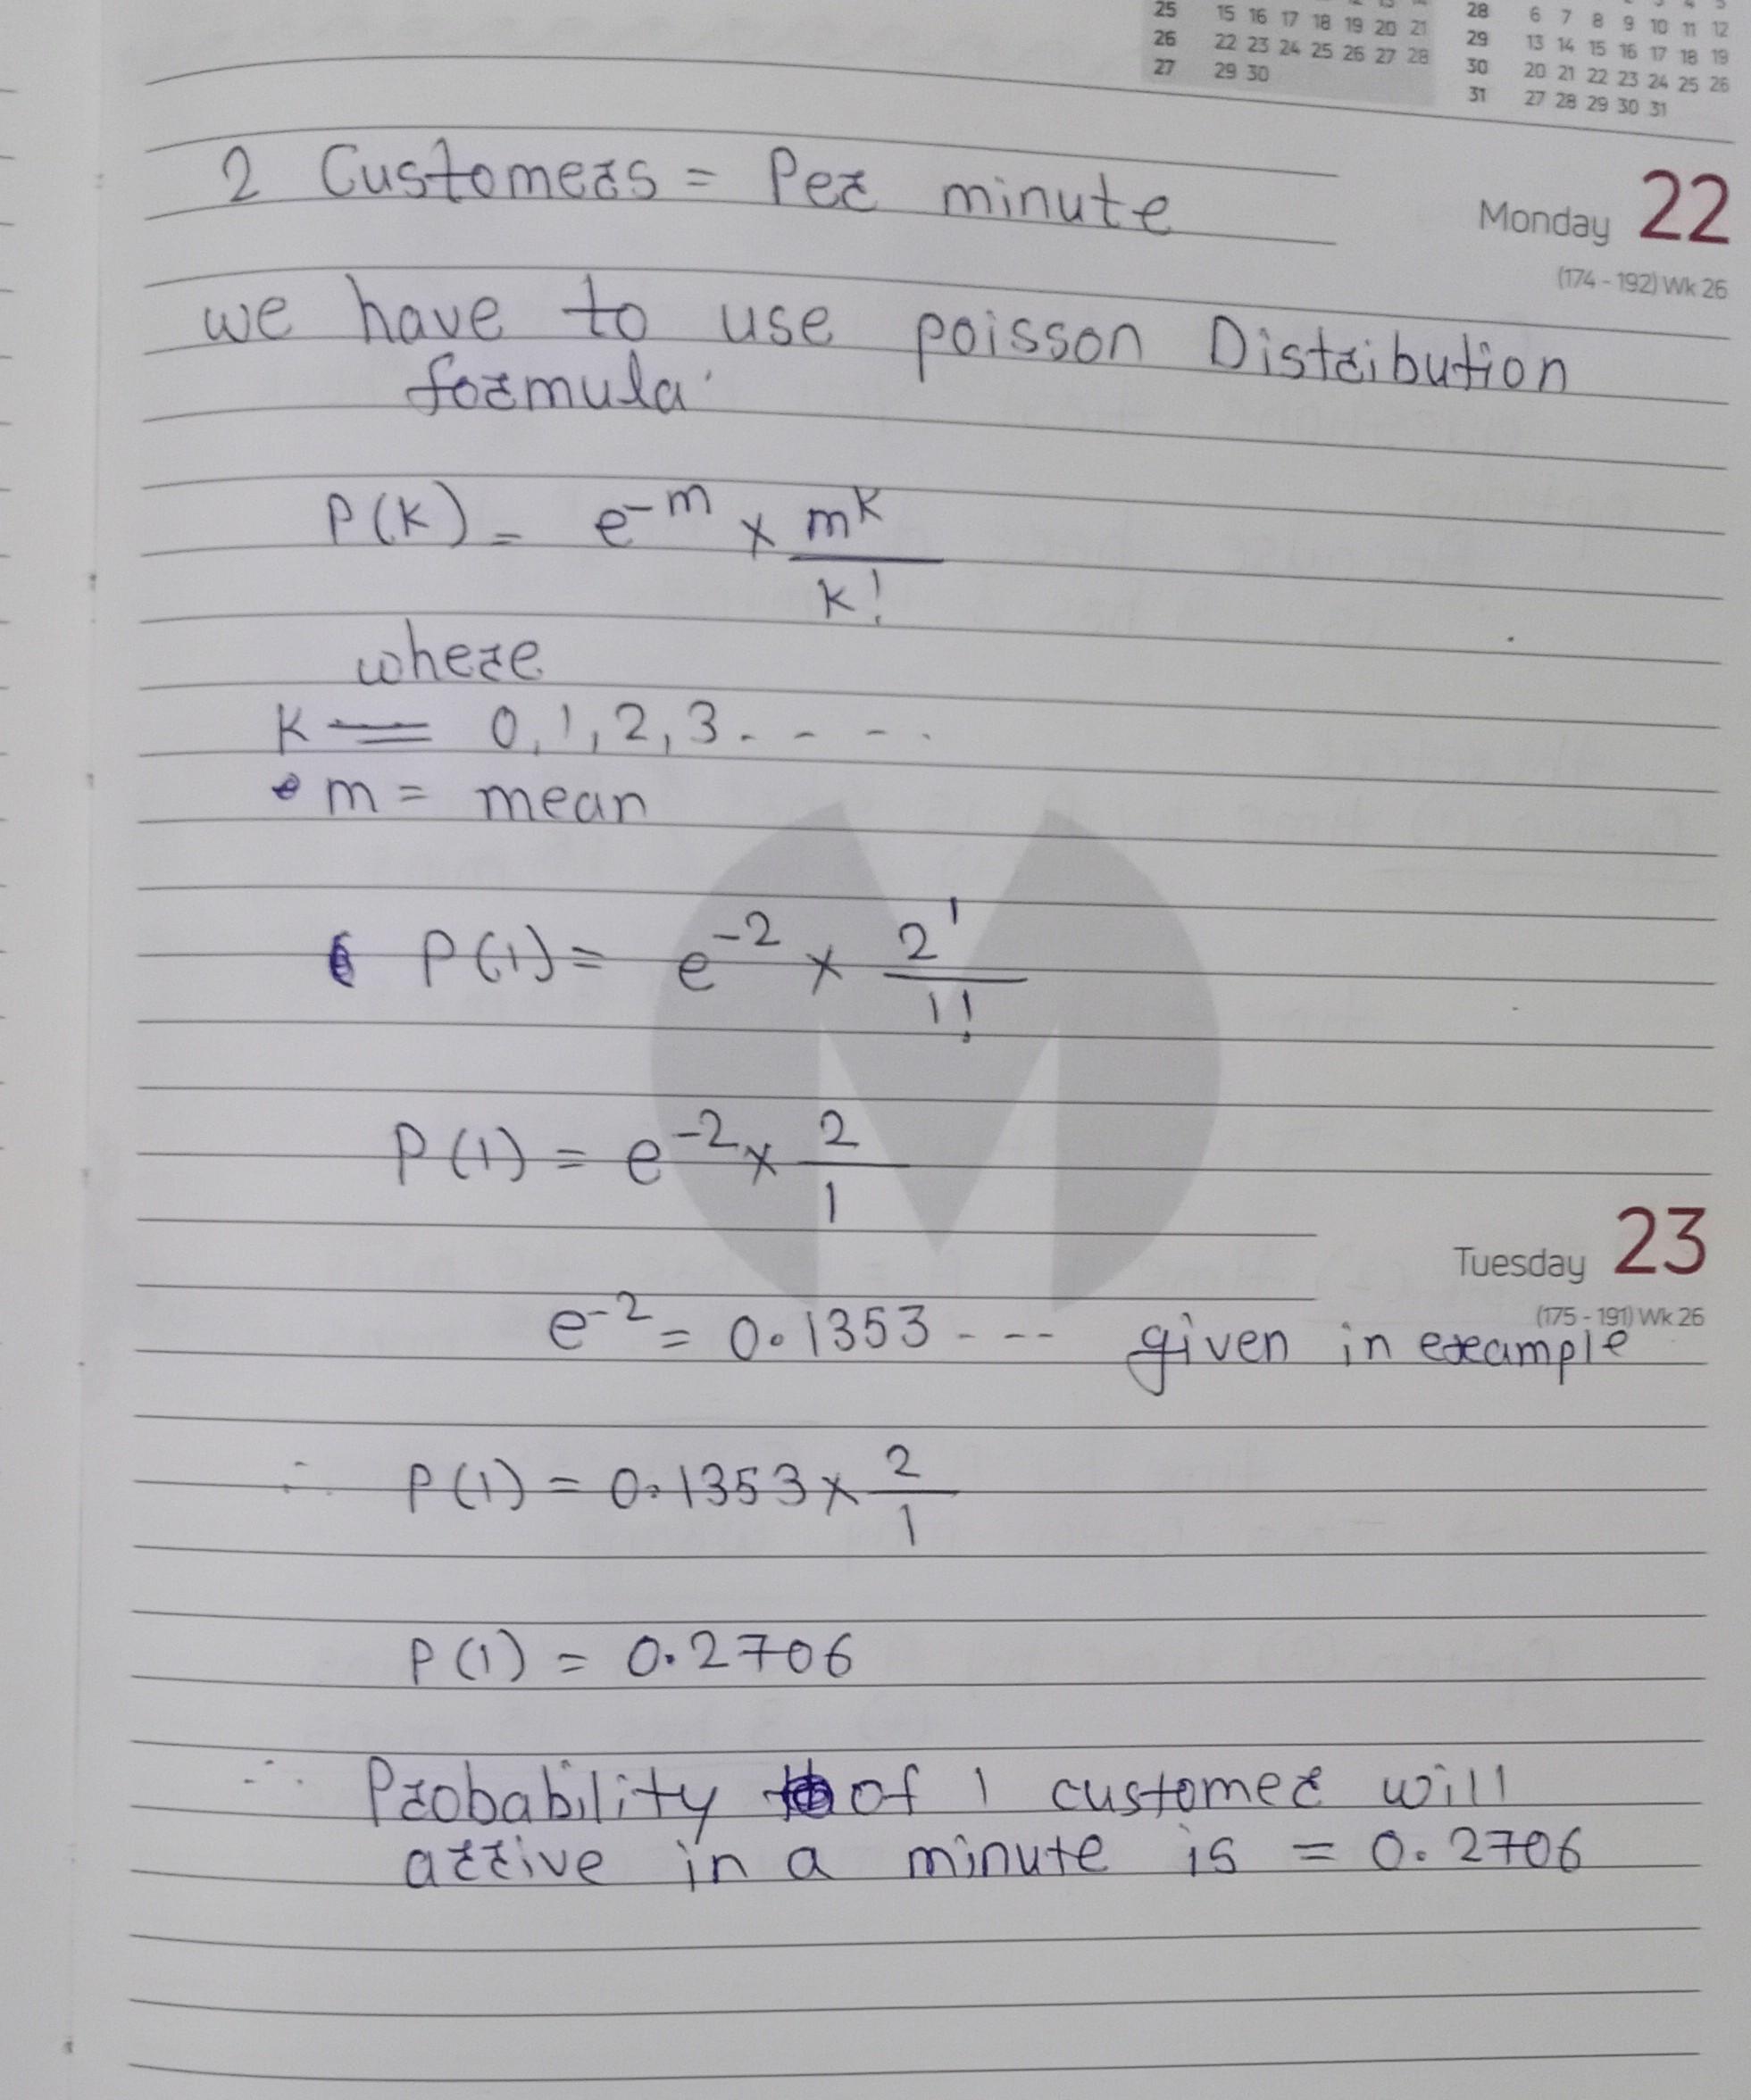 25 15 16 17 18 19 20 21
26 22 23 24 25 26 27 28
27 29 30
28 6 7 8 9 10 11 12
29 13 14 15 16 17 18 19
30 20 21 22 23 24 25 26
31 27 28 29 30 31
2 Customers = Per minute
Monday 22
(174 - 192) Wk 26
we have to use poisson Distribution
formula
P(K) = e^-m × m^K / K!
where
K = 0, 1, 2, 3. - - - .
m = mean
P(1) = e^-2 × 2^1 / 1!
P(1) = e^-2 × 2 / 1
Tuesday 23
(175 - 191) Wk 26
e^-2 = 0.1353 - -- given in example
∴ P(1) = 0.1353 × 2 / 1
P(1) = 0.2706
∴ Probability of 1 customer will
arrive in a minute is = 0.2706